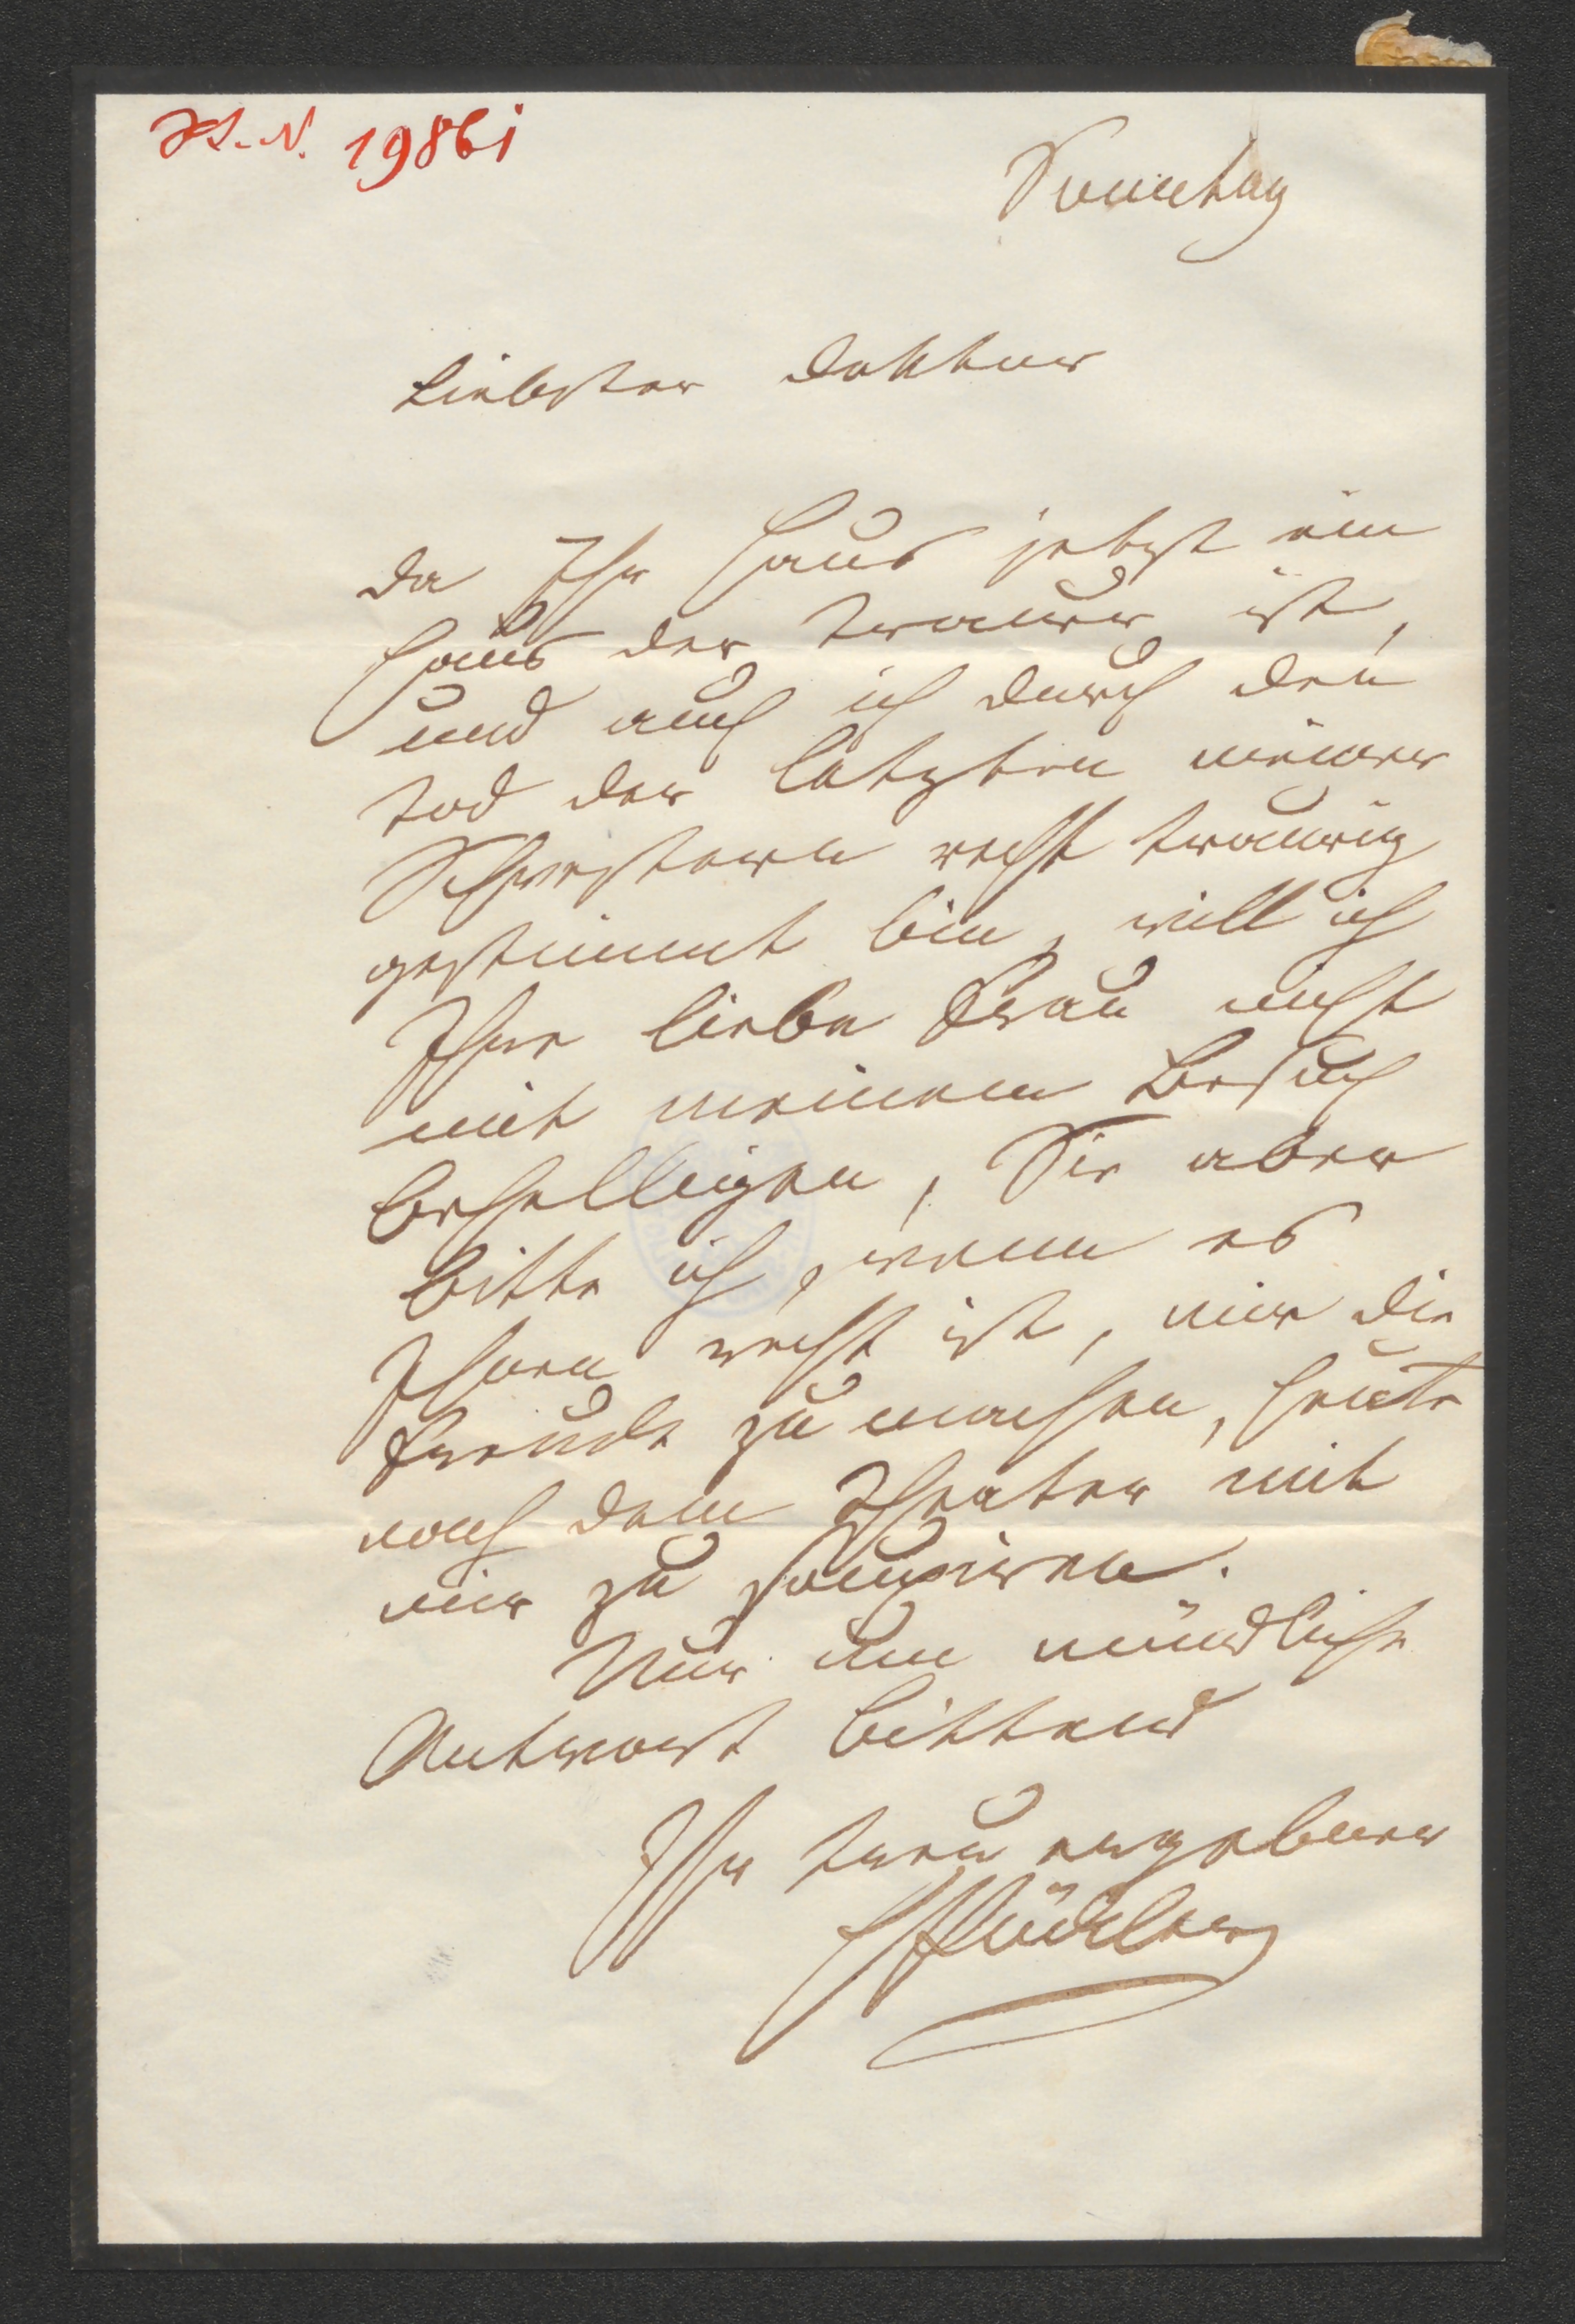 H.I.N. 19861
Sonntag
Liebster Doktor
da Ihr Haus jetzt ein
Haus der Trauer ist,
und auch ich durch den
Tod der letzten meiner
Schwestern recht traurig
gestimmt bin, will ich
Ihre liebe Frau nicht
mit meinem Besuch
behelligen, Sie aber
bitte ich, wenn es
Ihnen recht ist, mir die
Freude zu machen, heute
nach dem Theater mit
mir zu soupiren.
Nur um mündliche
Antwort bittend
Ihr treu ergebener